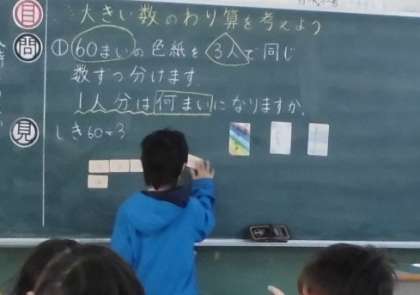 目 大きい数のわり算を考えよう
問 ①60まいの色紙を3人で同じ
数ずつ分けます
1人分は何まいになりますか.
見 しき60÷3